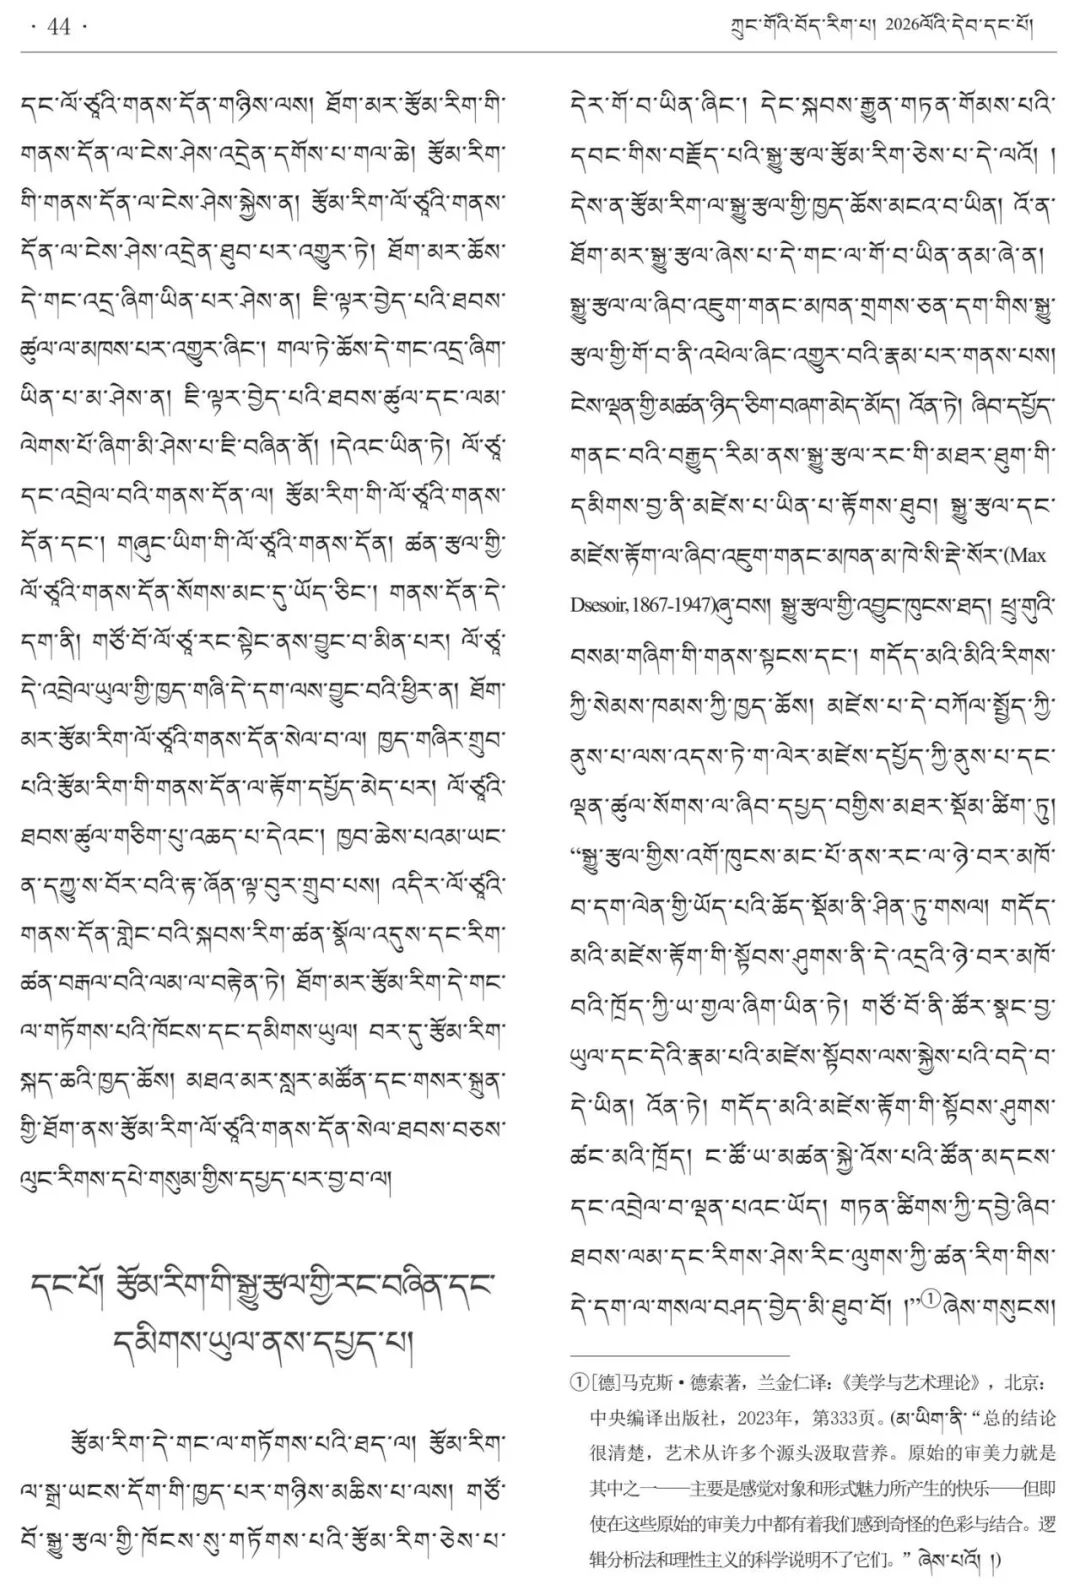 · 44 ·
ཀྲུང་གོའི་བོད་རིག་པ། 2026ལོའི་དེབ་དང་པོ།
དང་ལོ་ཙཱའི་གནས་དོན་གཉིས་ལས། ཐོག་མར་རྩོམ་རིག་གི་
གནས་དོན་ལ་ངེས་ཤེས་འདྲེན་དགོས་པ་གལ་ཆེ། རྩོམ་རིག་
གི་གནས་དོན་ལ་ངེས་ཤེས་སྐྱེས་ན། རྩོམ་རིག་ལོ་ཙཱའི་གནས་
དོན་ལ་ངེས་ཤེས་འདྲེན་ཐུབ་པར་འགྱུར་ཏེ། ཐོག་མར་ཆོས་
དེ་གང་འདྲ་ཞིག་ཡིན་པར་ཤེས་ན། ཇི་ལྟར་བྱེད་པའི་ཐབས་
ཚུལ་ལ་མཁས་པར་འགྱུར་ཞིང་། གལ་ཏེ་ཆོས་དེ་གང་འདྲ་ཞིག་
ཡིན་པ་མ་ཤེས་ན། ཇི་ལྟར་བྱེད་པའི་ཐབས་ཚུལ་དང་ལམ་
ལེགས་པོ་ཞིག་མི་ཤེས་པ་ཇི་བཞིན་ནོ། །དེའང་ཡིན་ཏེ། ལོ་ཙཱ་
དང་འབྲེལ་བའི་གནས་དོན་ལ། རྩོམ་རིག་གི་ལོ་ཙཱའི་གནས་
དོན་དང་། གཞུང་ཡིག་གི་ལོ་ཙཱའི་གནས་དོན། ཚན་རྩལ་གྱི་
ལོ་ཙཱའི་གནས་དོན་སོགས་མང་དུ་ཡོད་ཅིང་། གནས་དོན་དེ་
དག་ནི། གཙོ་བོ་ལོ་ཙཱ་རང་སྟེང་ནས་བྱུང་བ་མིན་པར། ལོ་ཙཱ་
དེ་འབྲེལ་ཡུལ་གྱི་ཁྱད་གཞི་དེ་དག་ལས་བྱུང་བའི་ཕྱིར་ན། ཐོག་
མར་རྩོམ་རིག་ལོ་ཙཱའི་གནས་དོན་སེལ་བ་ལ། ཁྱད་གཞིར་གྲུབ་
པའི་རྩོམ་རིག་གི་གནས་དོན་ལ་རྟོག་དཔྱོད་མེད་པར། ལོ་ཙཱའི་
ཐབས་ཚུལ་གཅིག་པུ་འཆད་པ་དེའང་། ཁྱབ་ཆེས་པའམ་ཡང་
ན་དཀྱུས་བོར་བའི་རྟ་ཞོན་ལྟ་བུར་གྲུབ་པས། འདིར་ལོ་ཙཱའི་
གནས་དོན་གླེང་བའི་སྐབས་རིག་ཚན་སྣོལ་འདུས་དང་རིག་
ཚན་བརྒལ་བའི་ལམ་ལ་བརྟེན་ཏེ། ཐོག་མར་རྩོམ་རིག་དེ་གང་
ལ་གཏོགས་པའི་ཁོངས་དང་དམིགས་ཡུལ། བར་དུ་རྩོམ་རིག་
སྐད་ཆའི་ཁྱད་ཆོས། མཐའ་མར་སླར་མཚོན་དང་གསར་སྐྲུན་
གྱི་ཐོག་ནས་རྩོམ་རིག་ལོ་ཙཱའི་གནས་དོན་སེལ་ཐབས་བཅས་
ལུང་རིགས་དཔེ་གསུམ་གྱིས་དཔྱད་པར་བྱ་བ་ལ།
དང་པོ། རྩོམ་རིག་གི་སྒྱུ་རྩལ་གྱི་རང་བཞིན་དང་
དམིགས་ཡུལ་ནས་དཔྱད་པ།
རྩོམ་རིག་དེ་གང་ལ་གཏོགས་པའི་ཐད་ལ། རྩོམ་རིག་
ལ་སྒྲ་ཡངས་དོག་གི་ཁྱད་པར་གཉིས་མཆིས་པ་ལས། གཙོ་
བོ་སྒྱུ་རྩལ་གྱི་ཁོངས་སུ་གཏོགས་པའི་རྩོམ་རིག་ཅེས་པ་
དེར་གོ་བ་ཡིན་ཞིང་། དེང་སྐབས་རྒྱུན་གཏན་གོམས་པའི་
དབང་གིས་བརྗོད་པའི་སྒྱུ་རྩལ་རྩོམ་རིག་ཅེས་པ་དེ་ལའོ། །
དེས་ན་རྩོམ་རིག་ལ་སྒྱུ་རྩལ་གྱི་ཁྱད་ཆོས་མངའ་བ་ཡིན། འོ་ན་
ཐོག་མར་སྒྱུ་རྩལ་ཞེས་པ་དེ་གང་ལ་གོ་བ་ཡིན་ནམ་ཞེ་ན།
སྒྱུ་རྩལ་ལ་ཞིབ་འཇུག་གནང་མཁན་གྲགས་ཅན་དག་གིས་སྒྱུ་
རྩལ་གྱི་གོ་བ་ནི་འཕེལ་ཞིང་འགྱུར་བའི་རྣམ་པར་གནས་པས།
ངེས་ལྡན་གྱི་མཚན་ཉིད་ཅིག་བཞག་མེད་མོད། འོན་ཏེ། ཞིབ་དཔྱོད་
གནང་བའི་བརྒྱུད་རིམ་ནས་སྒྱུ་རྩལ་རང་གི་མཐར་ཐུག་གི་
དམིགས་བྱ་ནི་མཛེས་པ་ཡིན་པ་རྟོགས་ཐུབ། སྒྱུ་རྩལ་དང་
མཛེས་རྟོག་ལ་ཞིབ་འཇུག་གནང་མཁན་མ་ཁེ་སི་རྡེ་སོར་(Max
Dsesoir, 1867-1947)ཞུ་བས། སྒྱུ་རྩལ་གྱི་འབྱུང་ཁུངས་ཐད། ཕྲུ་གུའི་
བསམ་གཞིག་གི་གནས་སྟངས་དང་། གདོད་མའི་མིའི་རིགས་
ཀྱི་སེམས་ཁམས་ཀྱི་ཁྱད་ཆོས། མཛེས་པ་དེ་བཀོལ་སྤྱོད་ཀྱི་
ནུས་པ་ལས་འདས་ཏེ་ག་ལེར་མཛེས་དཔྱོད་ཀྱི་ནུས་པ་དང་
ལྡན་ཚུལ་སོགས་ལ་ཞིབ་དཔྱད་བགྱིས་མཐར་སྡོམ་ཚིག་ཏུ།
“སྒྱུ་རྩལ་གྱིས་འགོ་ཁུངས་མང་པོ་ནས་རང་ལ་ཉེ་བར་མཁོ་
བ་དག་ལེན་གྱི་ཡོད་པའི་ཚོད་སྡོམ་ནི་ཤིན་ཏུ་གསལ། གདོད་
མའི་མཛེས་རྟོག་གི་སྟོབས་ཤུགས་ནི་དེ་འདྲའི་ཉེ་བར་མཁོ་
བའི་ཁྲོད་ཀྱི་ཡ་གྱལ་ཞིག་ཡིན་ཏེ། གཙོ་བོ་ནི་ཚོར་སྣང་བྱ་
ཡུལ་དང་དེའི་རྣམ་པའི་མཛེས་སྟོབས་ལས་སྐྱེས་པའི་བདེ་བ་
དེ་ཡིན། འོན་ཏེ། གདོད་མའི་མཛེས་རྟོག་གི་སྟོབས་ཤུགས་
ཚང་མའི་ཁྲོད། ང་ཚོ་ཡ་མཚན་སྐྱེ་འོས་པའི་ཚོན་མདངས་
དང་འབྲེལ་བ་ལྡན་པའང་ཡོད། གཏན་ཚིགས་ཀྱི་དབྱེ་ཞིབ་
ཐབས་ལམ་དང་རིགས་ཤེས་རིང་ལུགས་ཀྱི་ཚན་རིག་གིས་
དེ་དག་ལ་གསལ་བཤད་བྱེད་མི་ཐུབ་བོ། །”①ཞེས་གསུངས།
①[德]马克斯·德索著，兰金仁译：《美学与艺术理论》，北京：
中央编译出版社，2023年，第333页。(མ་ཡིག་ནི་“总的结论
很清楚，艺术从许多个源头汲取营养。原始的审美力就是
其中之一——主要是感觉对象和形式魅力所产生的快乐——但即
使在这些原始的审美力中都有着我们感到奇怪的色彩与结合。逻
辑分析法和理性主义的科学说明不了它们。”ཞེས་པའོ། །)